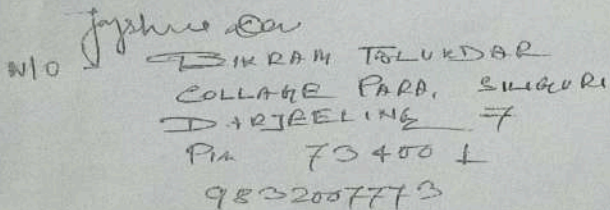 Jayshree Dev
W/O BIKRAM TALUKDAR
COLLAGE PARA, SILIGURI
DARJEELING 7
Pin 734001
9832007773